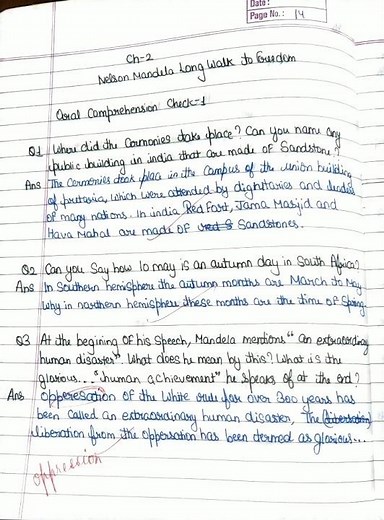 Date:
Page No.: 14
Ch-2
Nelson Mandela Long Walk to Freedom
Oral Comprehension Check-1
Q1 Where did the Cermonies take place? Can you name any
public building in india that are made of Sandstone?
Ans The Cermonies took place in the Campus of the union building
of pretoria, which were attended by dignitaries and leaders
of many nations. In india, Red Fort, Jama Masjid and
Hava Mahal are made of red S Sandstones.
Q2 Can you Say how 10 may is an autumn day in South Africa?
Ans In Southern hemisphere the autumn months are March to May
why in northern hemisphere these months are the time of Spring.
Q3 At the begining of his Speech, Mandela mentions "an extraordinary
human disaster". What does he mean by this? What is the
glorious... "human achievement" he speaks of at the end?
Ans Opperesation of the White rule for over 300 years has
been called an extraordinary human disaster, The (liberation)
liberation from the oppersation has been dermed as glorious...
oppression